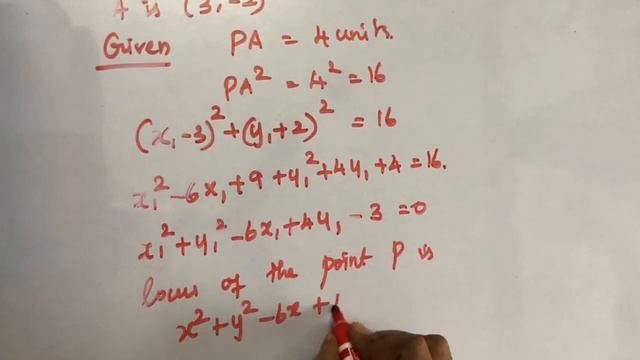 A is (3, -2)
Given PA = 4 units.
PA² = 4² = 16
(x₁ - 3)² + (y₁ + 2)² = 16
x₁² - 6x₁ + 9 + y₁² + 4y₁ + 4 = 16.
x₁² + y₁² - 6x₁ + 4y₁ - 3 = 0
locus of the point P is
x² + y² - 6x +